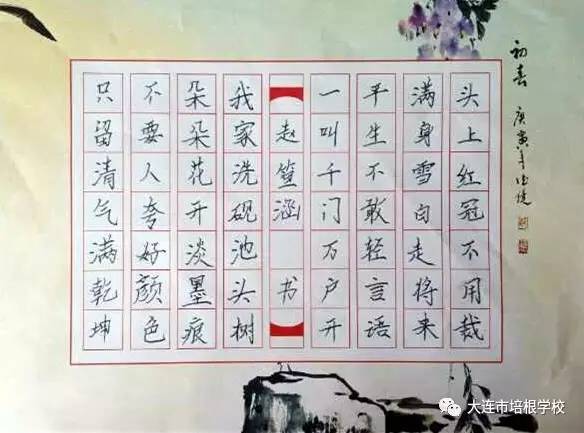 初春
庚寅年
头上红冠不用裁
满身雪白走将来
平生不敢轻言语
一叫千门万户开
赵 涵 书
我家洗砚池头树
朵朵花开淡墨痕
不要人夸好颜色
只留清气满乾坤
大连市培根学校